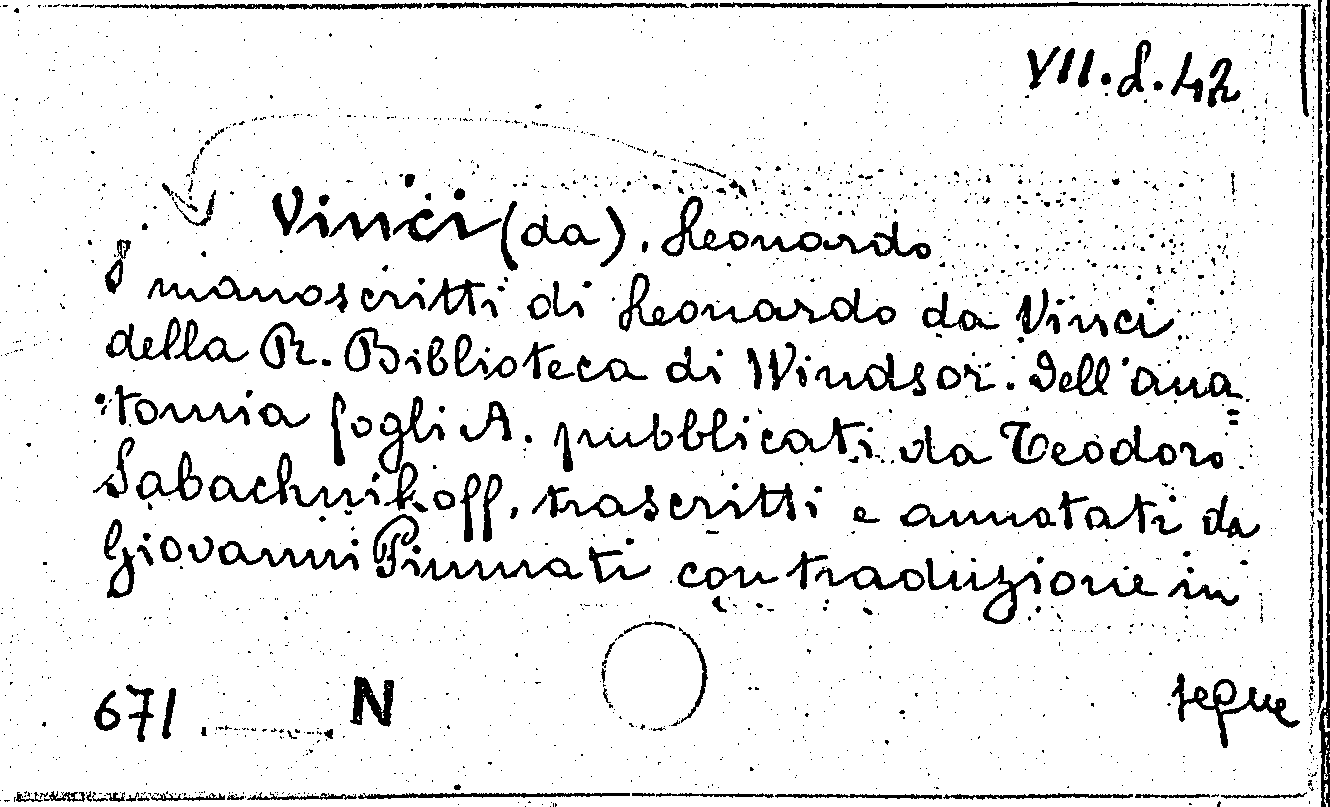 VII.d.42
Vinci (da). Leonardo
I manoscritti di Leonardo da Vinci
della R. Biblioteca di Windsor. Dell'ana=
tomia fogli A. pubblicati da Teodoro
Sabachnikoff, trascritti e annotati da
Giovanni Piumati con traduzione in
671. N
segue